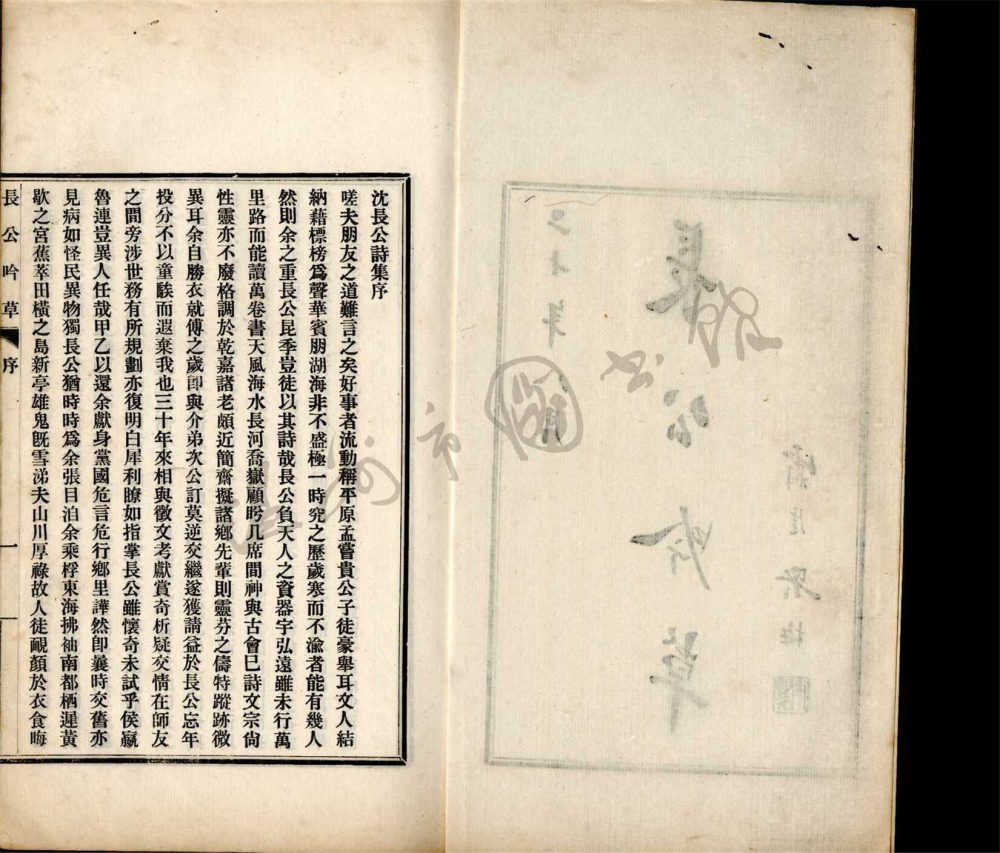 沈長公詩集序
嗟夫朋友之道難言之矣好事者流動稱平原孟嘗貴公子徒豪舉耳文人結
納藉標榜爲聲華賓朋湖海非不盛極一時究之歷歲寒而不渝者能有幾人
然則余之重長公昆季豈徒以其詩哉長公負天人之資器宇弘遠雖未行萬
里路而能讀萬卷書天風海水長河喬嶽顧盻几席間神與古會已詩文宗尙
性靈亦不廢格調於乾嘉諸老頗近簡齋擬諸鄉先輩則靈芬之儔特蹤跡微
異耳余自勝衣就傅之歲卽與介弟次公訂莫逆交繼遂獲請益於長公忘年
投分不以童騃而遐棄我也三十年來相與徵文考獻賞奇析疑交情在師友
之間旁涉世務有所規劃亦復明白犀利瞭如指掌長公雖懷奇未試乎侯嬴
魯連豈異人任哉甲乙以還余獻身黨國危言危行鄉里譁然卽曩時交舊亦
見病如怪民異物獨長公猶時時爲余張目泊余乘桴東海拂袖南都栖遲黃
歇之宮蕉萃田橫之島新亭雄鬼旣雪涕夫山川厚祿故人徒靦顏於衣食晦
長公吟草
序
一
長公吟草